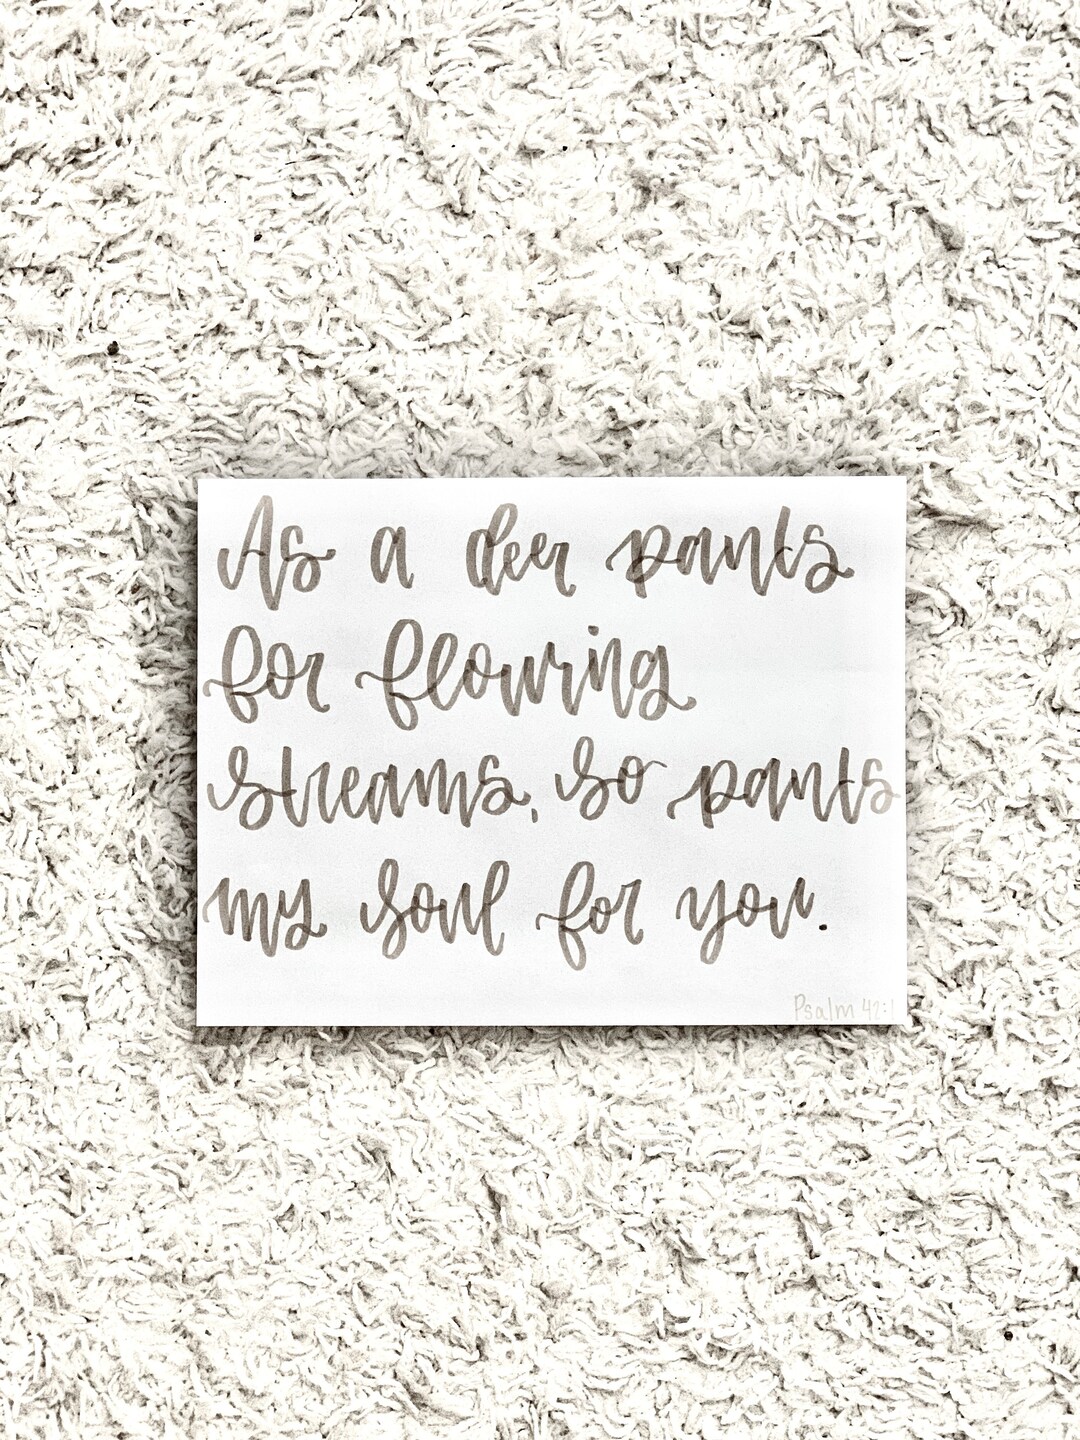 As a deer pants
for flowing
streams, so pants
my soul for you.
Psalm 42:1